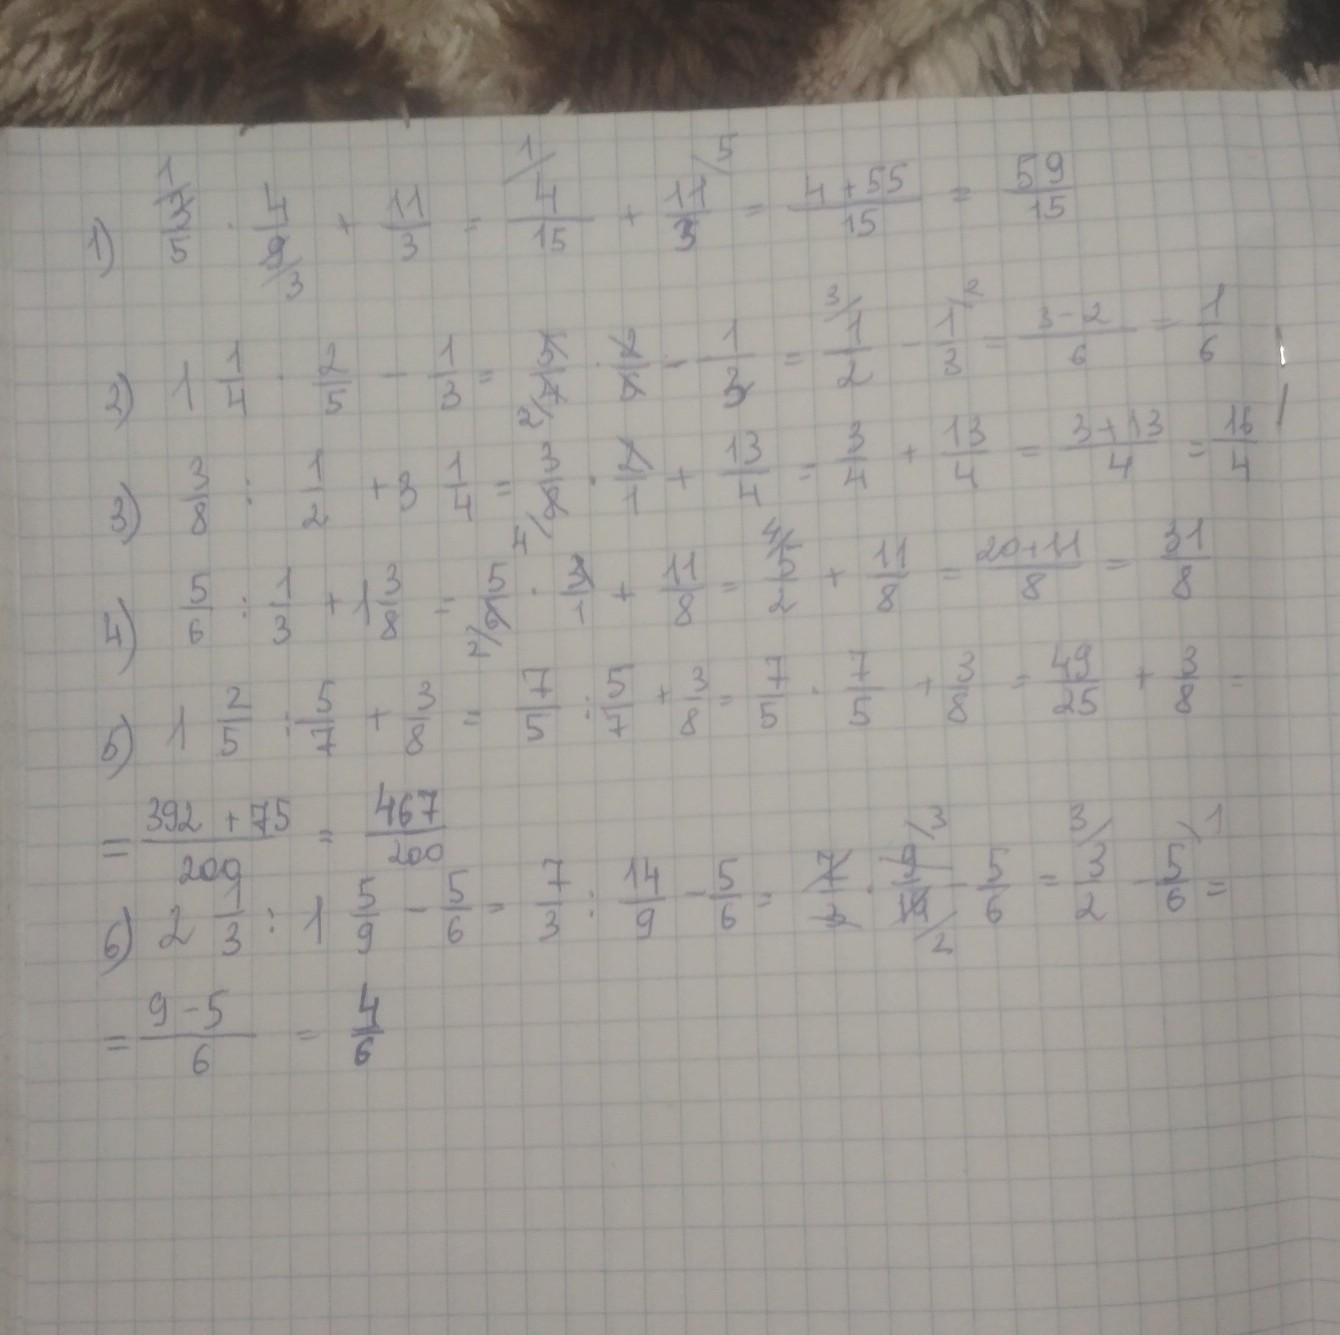 1) 3/5 · 4/9 + 11/3 = 4/15 + 11/3 = 4+55/15 = 59/15
2) 1 1/4 · 2/5 - 1/3 = 5/4 · 2/5 - 1/3 = 1/2 - 1/3 = 3-2/6 = 1/6
3) 3/8 : 1/2 + 3 1/4 = 3/8 · 2/1 + 13/4 = 3/4 + 13/4 = 3+13/4 = 16/4
4) 5/6 : 1/3 + 1 3/8 = 5/6 · 3/1 + 11/8 = 5/2 + 11/8 = 20+11/8 = 31/8
5) 1 2/5 : 5/7 + 3/8 = 7/5 : 5/7 + 3/8 = 7/5 · 7/5 + 3/8 = 49/25 + 3/8 =
= 392+75/200 = 467/200
6) 2 1/3 : 1 5/9 - 5/6 = 7/3 : 14/9 - 5/6 = 7/3 · 9/14 - 5/6 = 3/2 - 5/6 =
= 9-5/6 = 4/6